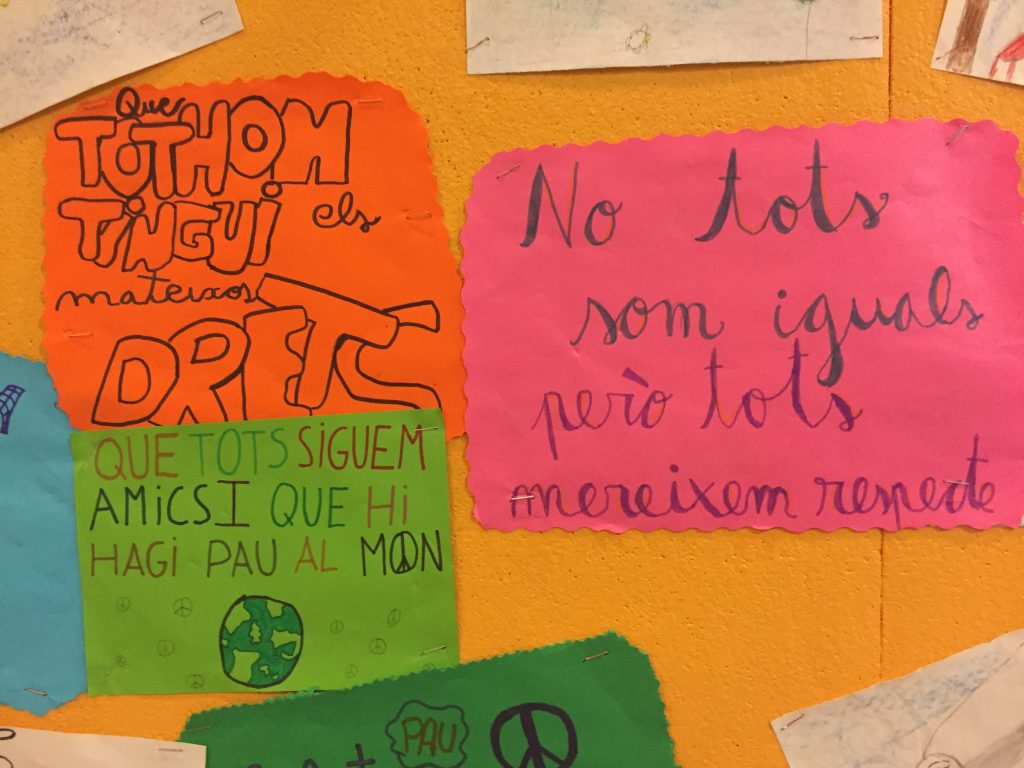 Que
TOTHOM
TINGUI els
mateixos
DRETS
No tots
som iguals
però tots
mereixem respecte
QUE TOTS SiGUEM
AMiCS I QUE Hi
HAGi PAU AL MON
PAU